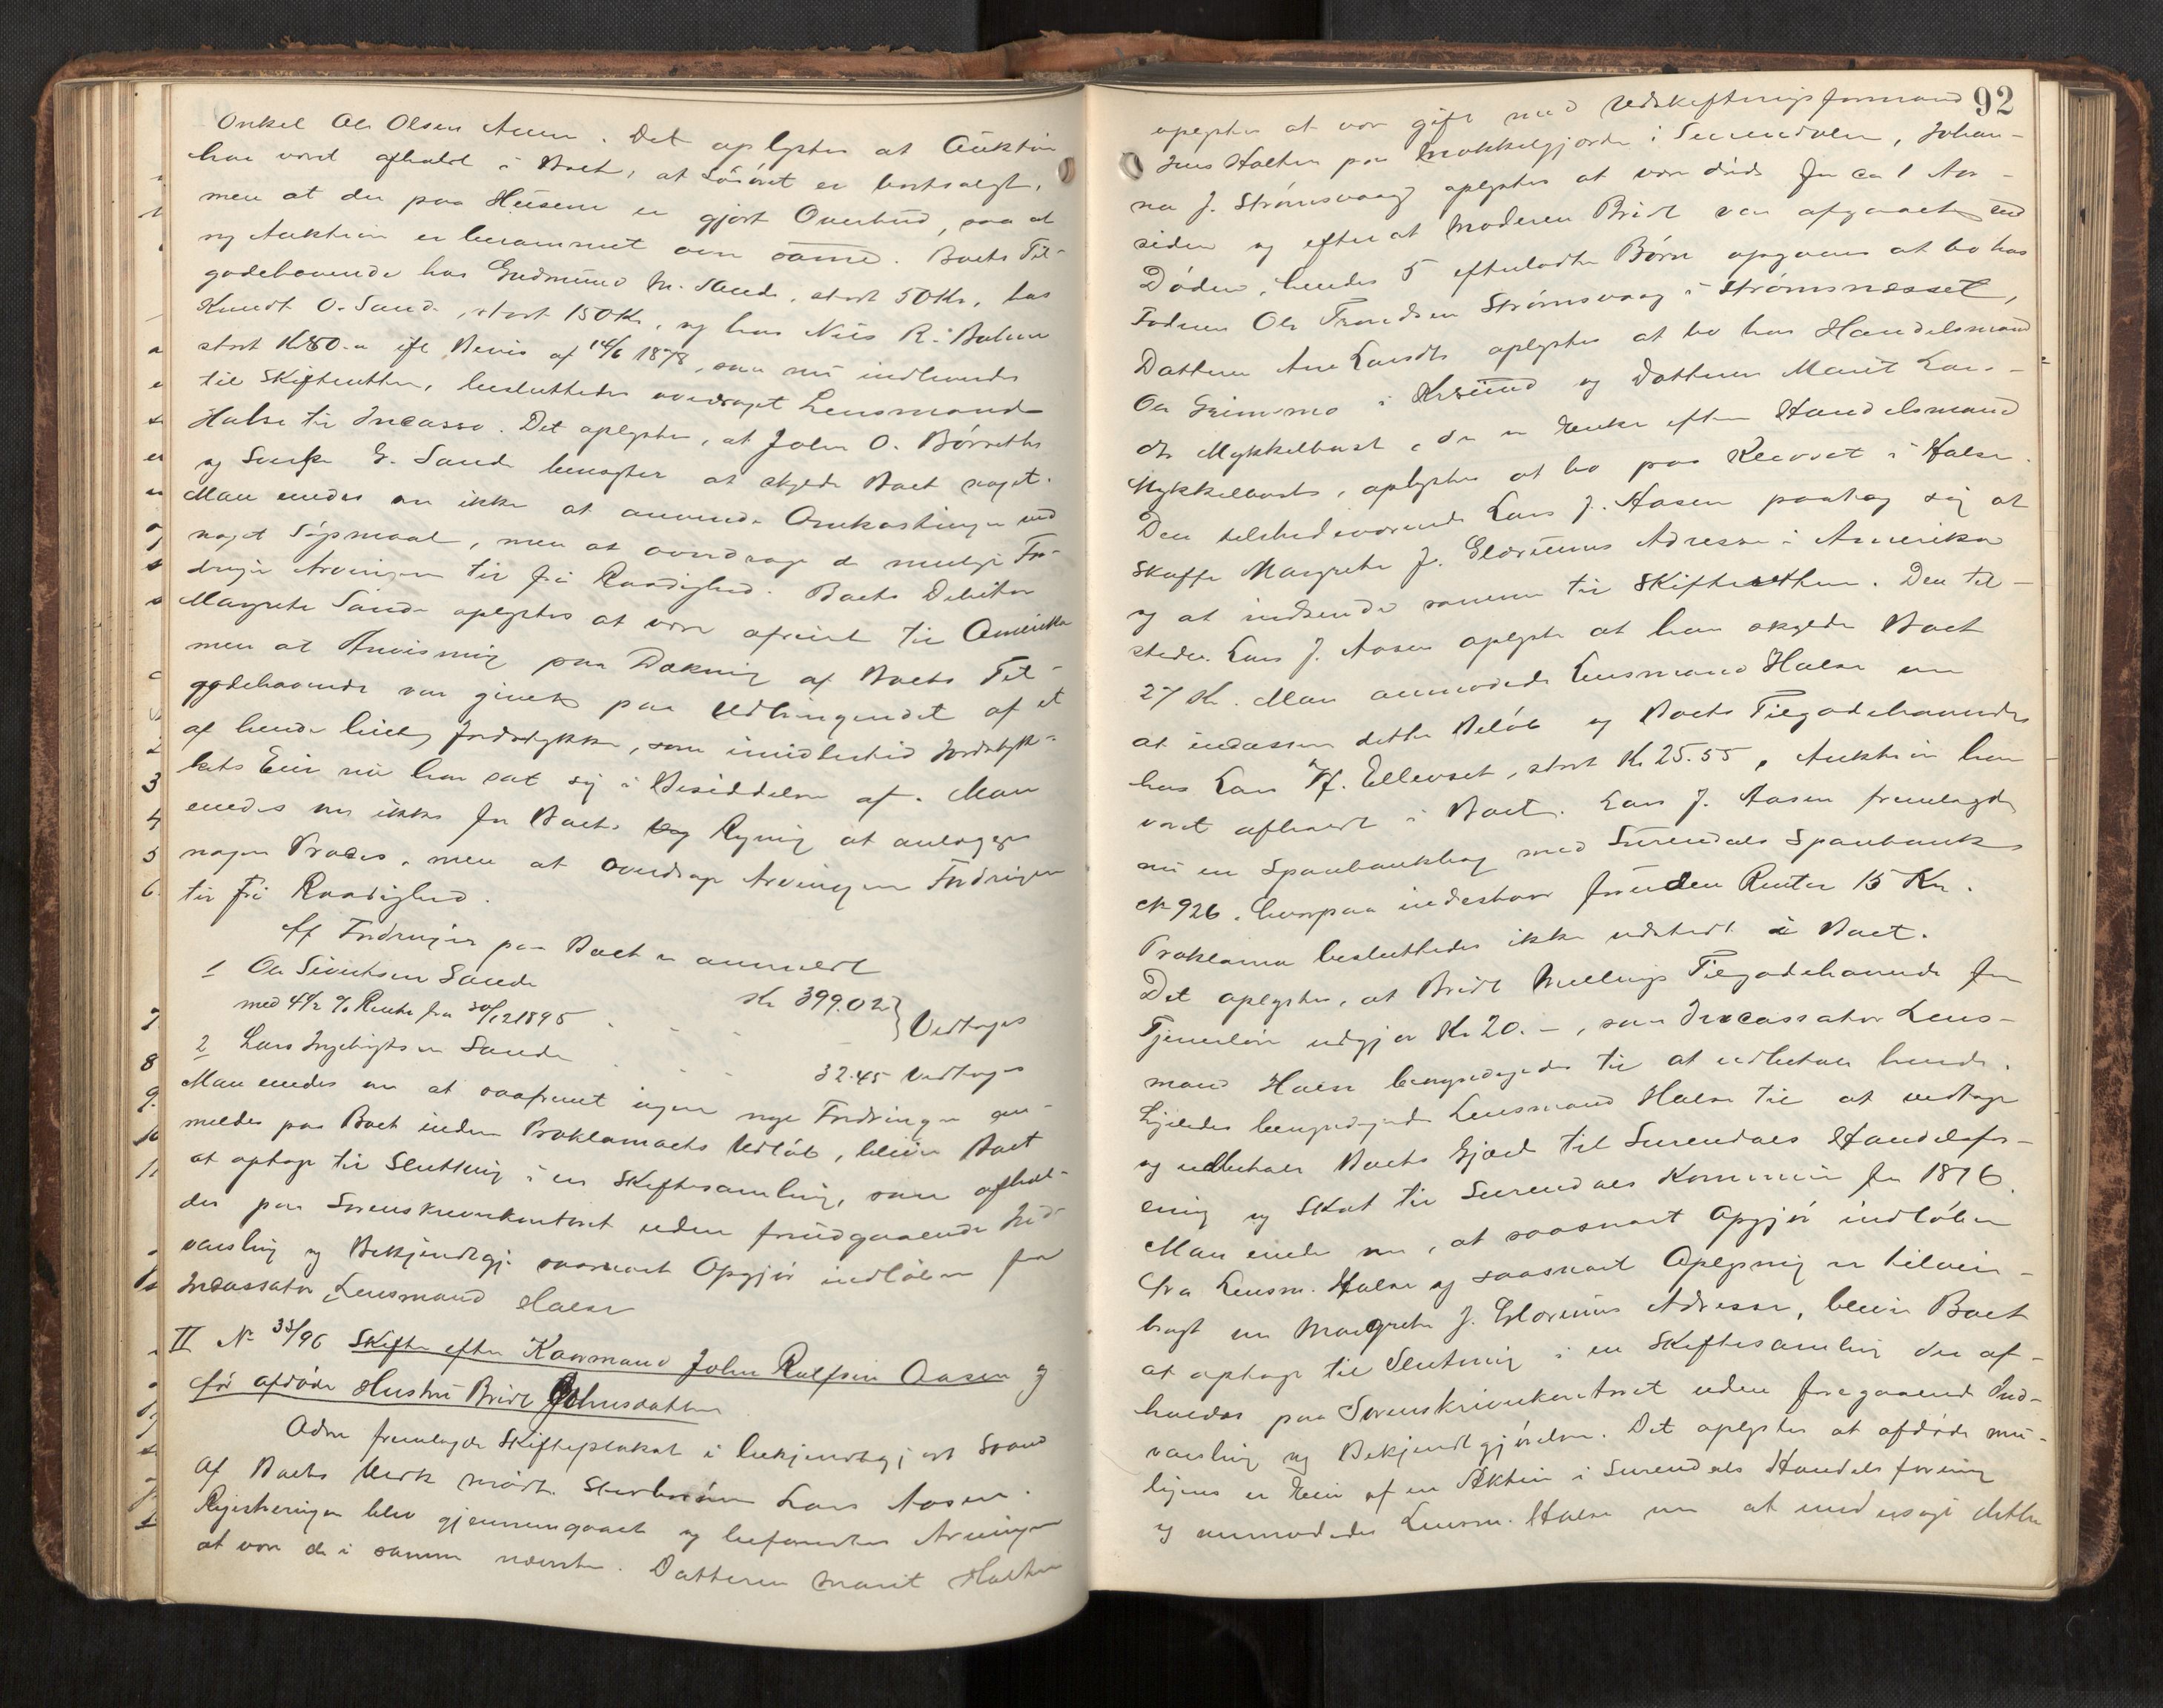 Onkel Ole Olsen Aune. Det oplystes at Auktion
har vært afholdt i Boet, at Løsøret er bortsolgt,
men at der paa Husene er gjort Overbud, saa at
ny Auktion er berammet over samme. Boets Til-
godehavende hos Gudmund M. Sande, stort 50 Kr, hos
Knudt O. Sande, stort 150 Kr, og hos Nils R. Bolme
stort Kr 80.- ifl Bevis af 14/6 1878, som nu indhændes
til Skifteretten, besluttedes overdraget Lensmand
Halse til Incasso. Det oplystes, at John O. Børseth
og G. Sande benegter at skylde Boet noget.
Man enedes om ikke at anvende Omkostninger ved
noget Søgsmaal, men at overdrage de mulige For-
dringer Arvingerne til fri Raadighed. Boets Debitor
Margrete Sande oplystes at være afreist til Amerika
men at Anvisning paa Dækning af Boets Til-
godehavende var givet paa Udbringendet af et
af hende Jordstykke, som imidlertid Jordstyk-
kets Eier nu har sat sig i Besiddelse af. Man
enedes om ikke for Boets Regning at anlægge
nogen Proces, men at overdrage Arvingerne Fordringen
til fri Raadighed.
Af Fordringer paa Boet er anmeldt
1 Ole Sivertsen Sande
med 4 1/2 % Rente fra 30/12 1895 . - - Kr 399.02 } Vedtages
2 Lars Ingebrigtsen Sande . - - 32.45 Vedtages
Man enedes om at saafremt ingen nye Fordringer an-
meldes paa Boet inden Proklamaets Udløb, bliver Boet
at optage til Slutning i en Skiftesamling, som afhol-
des paa Sorenskriverkontoret uden forudgaaende Ind-
varsling og Bekjendtgj. saasnart Opgjør indløber fra
Incassator, Lensmand Halse
II No 33/96 Skifte efter Kaarmand John Rolfsen Aasen og
før afdøde Hustru Bridt Johnsdatter
Adm fremlagde Skifteplakat i bekjendtgjort Stand
Af Boets Vedk mødte Lars Aasen.
Registreringen blev gjennemgaaet og befandtes Arvingerne
at være de i samme nævnte. Datteren Marit Halten
92
oplystes at være gift med Udskiftningsformand
Jens Halten paa i Surendalen, Johan-
na J. Strømsvaag oplystes at være død for ca 1 Aar
siden og efter at Moderen Bridt var afgaaet ved
Døden, hendes 5 efterladte Børn opgaves at bo hos
Faderen Ole Trondsen Strømsvaag i Strømsnesset,
Datteren Ane Larsdtr oplystes at bo hos Handelsmand
Ole Grimsmo i Krsund og Datteren Marit Lars-
dtr Mykkelbust, der er Enke efter Handelsmand
Mykkelbust, oplystes at bo paa Kleevset i Halse.
Den tilstedeværende Lars J. Aasen paatog sig at
skaffe Margrete J. Glærums Adresse i Amerika
og at indsende samme til Skifteretten. Den til-
stedev. Lars J. Aasen oplyste at han skylde Boet
27 Kr. Man anmodede Lensmand Halse om
at incassere dette Beløb og Boets Tilgodehavende
hos Lars H. Ellevset, stort Kr 25.55, Auktion har
været afholdt i Boet. Lars J. Aasen fremlagde
nu en Sparebankbog med Surendals Sparebank
No 926, hvorpaa indestaar foruden Renter 15 Kr.
Proklama besluttedes ikke udstedt i Boet.
Det oplystes, at Bridt Mellings Tilgodehavende for
Tjenerløn udgjør Kr 20.-, som Incassator Lens-
mand Halse bemyndigedes til at udbetale hende.
Ligeledes bemyndigedes Lensmand Halse til at vedtage
og udbetale Boets Gjæld til Surendals Handelsfor-
ening og Skat til Surendals Kommune for 1896.
Man enedes om, at saasnart Opgjør indløber
fra Lensm. Halse og saasnart Oplysning er tilveie-
bragt om Margrete J. Glærums Adresse, bliver Boet
at optage til Slutning i en Skiftesamling der af-
holdes paa Sorenskriverkontoret uden foregaaende Ind-
varsling og Bekjendtgjørelse. Det oplystes at afdøde mu-
ligens er Eier af en Aktie i Surendals Handelsforening
og anmodedes Lensm. Halse om at undersøge dette